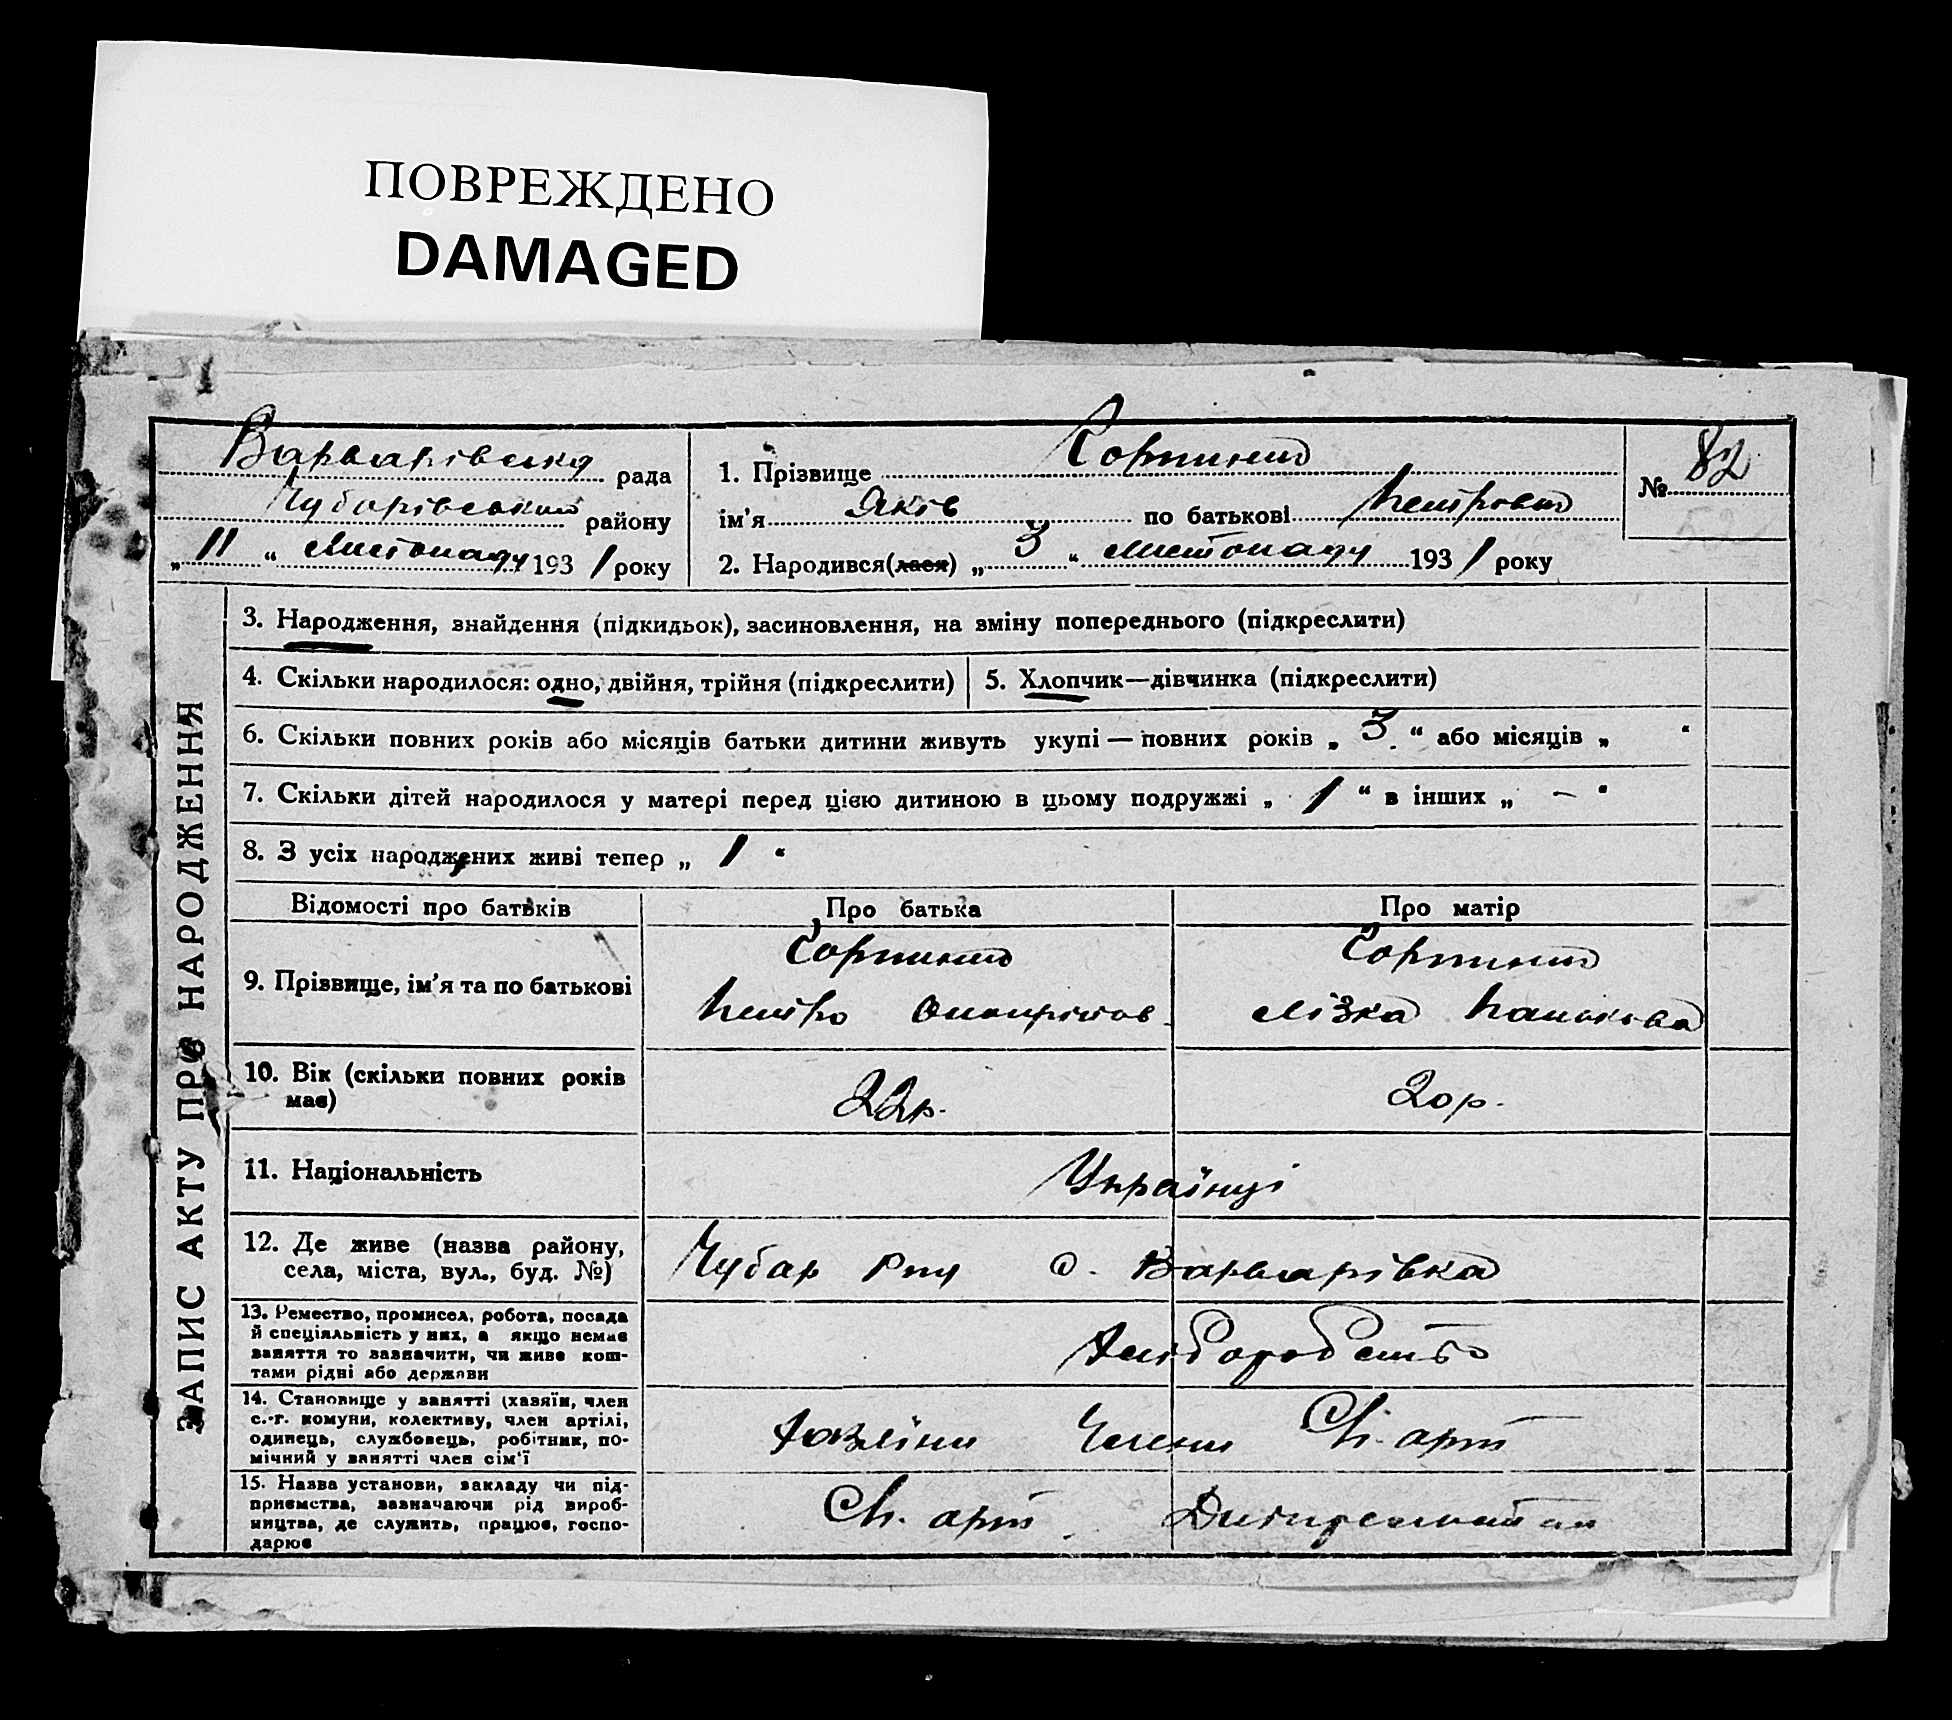 ПОВРЕЖДЕНО
DAMAGED
Варварівська рада
Чубарівський району
„ 11 “ Листопаду 1931 року
1. Прізвище
ім'я Яків по батькові Петрович
2. Народився(лася) „ 3 “ листопаду 1931 року
№ 82
ЗАПИС АКТУ ПРО НАРОДЖЕННЯ
3. Народження, знайдення (підкидьок), засиновлення, на зміну попереднього (підкреслити)
4. Скільки народилося: одно, двійня, трійня (підкреслити)
5. Хлопчик—дівчинка (підкреслити)
6. Скільки повних років або місяців батьки дитини живуть укупі — повних років „ 3 “ або місяців „ “
7. Скільки дітей народилося у матері перед цією дитиною в цьому подружжі „ 1 “ в інших „ – “
8. З усіх народжених живі тепер „ 1 “
Відомості про батьків
Про батька
Про матір
9. Прізвище, ім'я та по батькові
Петро
Лізка
10. Вік (скільки повних років
має)
22р.
20р.
11. Національність
Українці
12. Де живе (назва району,
села, міста, вул., буд. №)
Чубар с. Варварівка
13. Ремество, промисел, робота, посада
й спеціяльність у них, а якщо немає
заняття то зазначити, чи живе кош-
тами рідні або держави
Хліборобство
14. Становище у занятті (хазяїн, член
с.-г. комуни, колективу, член артілі,
одинець, службовець, робітник, по-
мічний у занятті член сім'ї
Члени арт
15. Назва установи, закладу чи під-
приємства, зазначаючи рід вироб-
ництва, де служить, працює, госпо-
дарює
арт.